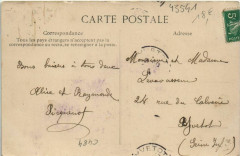 43541
18 €
CARTE POSTALE
Correspondance
Adresse
Tous les pays étrangers n'acceptent pas la
correspondance au recto, se renseigner à la poste.
Monsieur et Madame
Bons baisers à tous deux
Alice et Raymonde
24 rue du Calvaire
Yvetot
(Seine Inf)